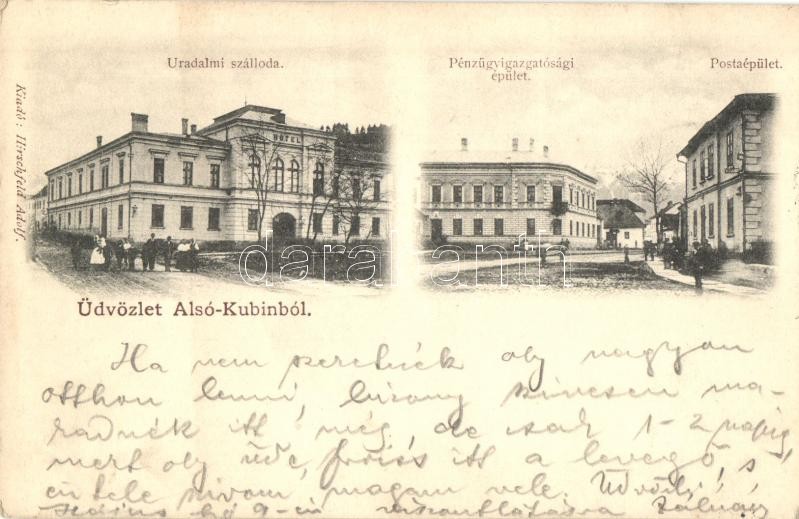 Uradalmi szálloda.
Pénzügyigazgatósági
épület.
Postaépület.
HOTEL
Kiadó: Hirschfeld Adolf.
darabanth.com
Üdvözlet Alsó-Kubinból.
Ha nem szeretnék oly nagyon
otthon lenni, bizony szivesen ma-
radnék itt még, de csak 1-2 napig
mert oly üde, friss itt a levegő, s
én tele szivom magam vele. Üdvözli
hó 9-én viszontlátásra Kálmán